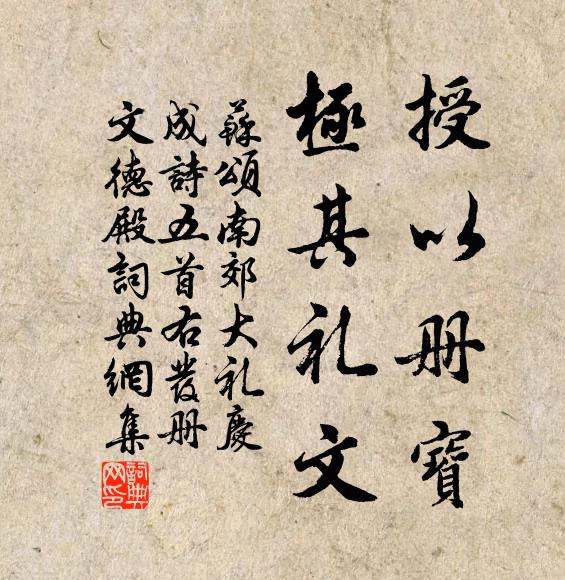 授以册寶
極其礼文
蘇頌南郊大礼慶
成詩五首右發册
文德殿詞典網集
詞典
网印